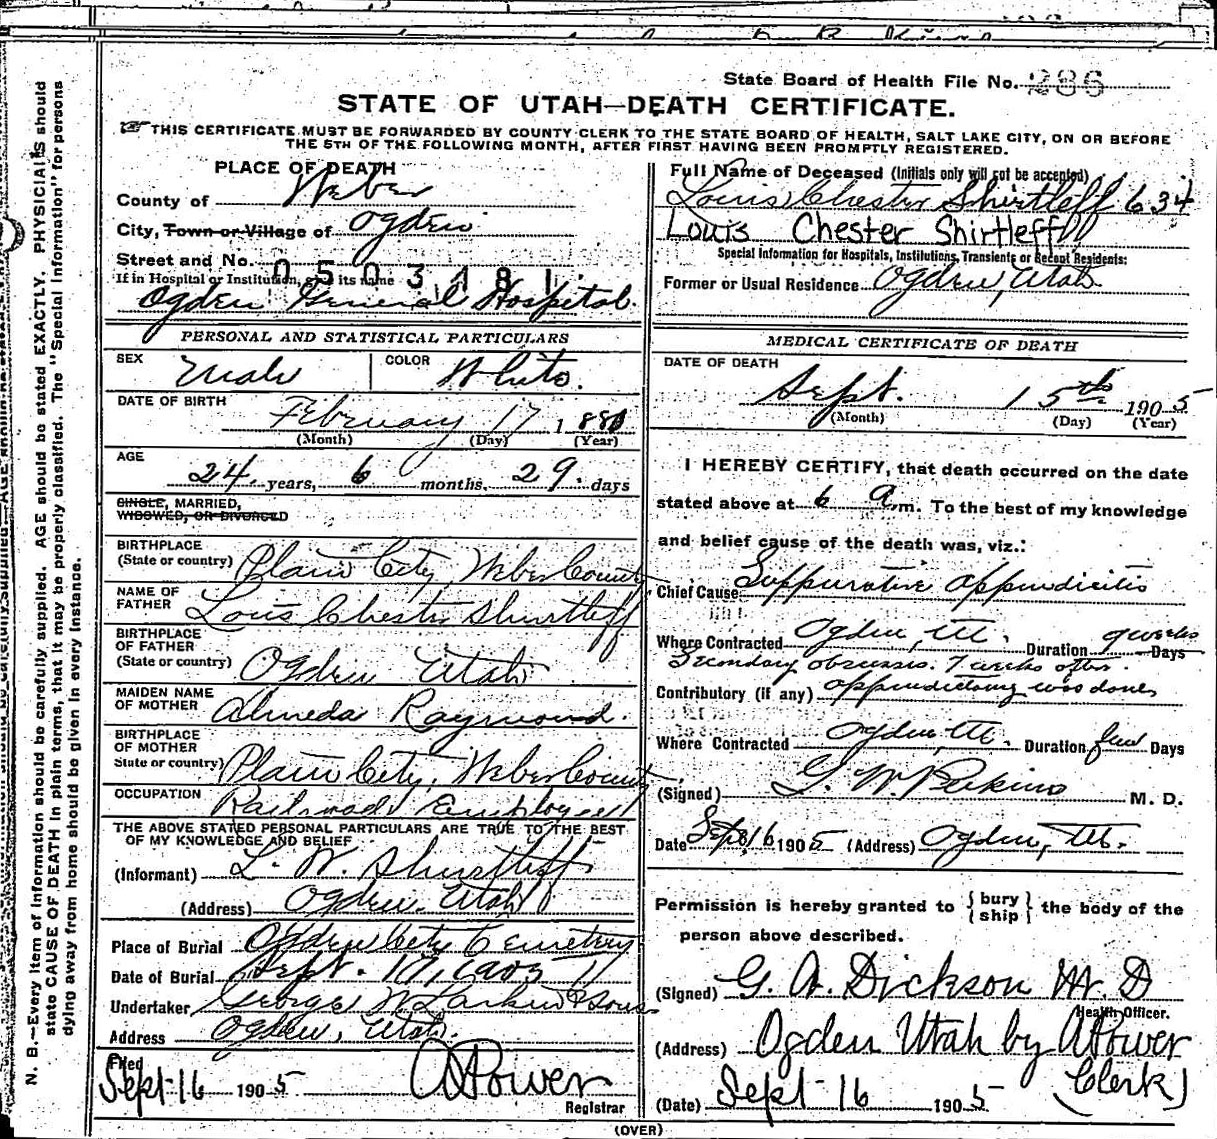 State Board of Health File No. 286
STATE OF UTAH—DEATH CERTIFICATE.
THIS CERTIFICATE MUST BE FORWARDED BY COUNTY CLERK TO THE STATE BOARD OF HEALTH, SALT LAKE CITY, ON OR BEFORE
THE 5TH OF THE FOLLOWING MONTH, AFTER FIRST HAVING BEEN PROMPTLY REGISTERED.
PLACE OF DEATH
County of Weber
City, Town or Village of Ogden
Street and No.
0503481
If in Hospital or Institution, give its name
Ogden General Hospital.
PERSONAL AND STATISTICAL PARTICULARS
SEX Male COLOR White.
DATE OF BIRTH February 17, 1881
(Month) (Day) (Year)
AGE
24 years, 6 months, 29. days
SINGLE, MARRIED,
WIDOWED, OR DIVORCED
BIRTHPLACE
(State or country) Plain City, Weber County
NAME OF
FATHER Louis Chester Shurtleff
BIRTHPLACE
OF FATHER
(State or country) Ogden Utah
MAIDEN NAME
OF MOTHER Almeda Raymond.
BIRTHPLACE
OF MOTHER
State or country) Plain City, Weber County
OCCUPATION Railroad Employee
THE ABOVE STATED PERSONAL PARTICULARS ARE TRUE TO THE BEST
OF MY KNOWLEDGE AND BELIEF
(Informant) L. W. Shurtleff
(Address) Ogden, Utah
Place of Burial Ogden City Cemetery
Date of Burial Sept. 17, 1905
Undertaker George W Larkin & Sons
Address Ogden, Utah.
Filed
Sept 16 1905. APower
Registrar
Full Name of Deceased (Initials only will not be accepted)
Louis Chester Shirtleff 634
Louis Chester Shirtleff
Special Information for Hospitals, Institutions, Transients or Recent Residents:
Former or Usual Residence Ogden, Utah
MEDICAL CERTIFICATE OF DEATH
DATE OF DEATH
Sept. 15th 1905
(Month) (Day) (Year)
I HEREBY CERTIFY, that death occurred on the date
stated above at 6 a.m. To the best of my knowledge
and belief cause of the death was, viz.:
Chief Cause Suppurative appendicitis
Where Contracted Ogden, Ut. Duration 9 weeks Days
Secondary abscesses. 7 weeks after
Contributory (if any) appendictomy was done,
Where Contracted Ogden, Ut. Duration few Days
(Signed) G. W Perkins M. D.
Date Sept 16 1905 (Address) Ogden, Ut.
Permission is hereby granted to { bury ship } the body of the
person above described.
(Signed) G. A. Dickson M. D
Health Officer.
(Address) Ogden Utah by APower
Clerk)
(Date) Sept 16 1905.
(OVER)
N. B.—Every item of information should be carefully supplied. AGE should be stated EXACTLY. PHYSICIANS should
state CAUSE OF DEATH in plain terms, that it may be properly classified. The "Special Information" for persons
dying away from home should be given in every instance.